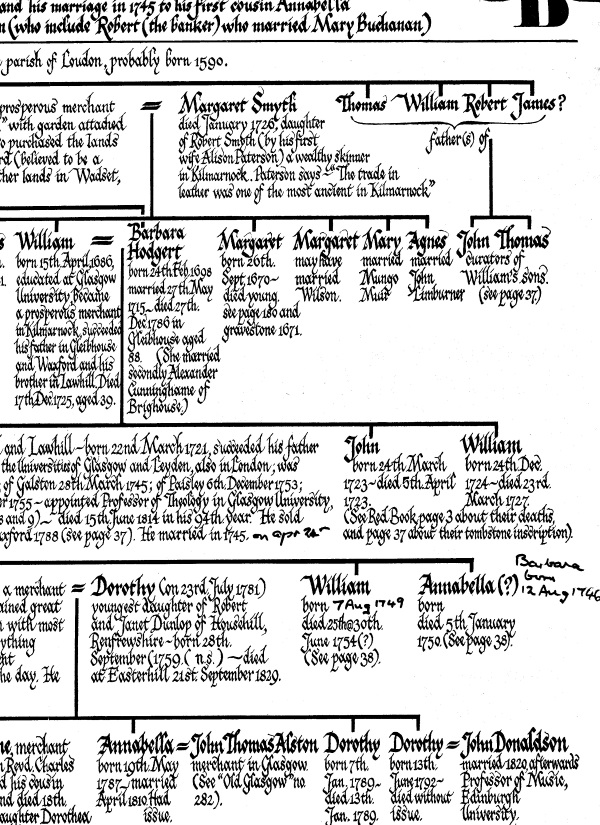 and his marriage in 1745 to his first cousin Annabella
n (who include Robert (the banker) who married Mary Buchanan)
B
parish of Loudon, probably born 1590.
prosperous merchant
" with garden attached
o purchased the lands
rd (believed to be a
ther lands in Wadset,
=
Margaret Smyth
died January 1726, daughter
of Robert Smyth (by his first
wife Alison Paterson) a wealthy skinner
in Kilmarnock. Paterson says ~ "The trade in
leather was one of the most ancient in Kilmarnock"
Thomas William Robert James?
father(s) of
s William =
born 15th. April 1686,
educated at Glasgow
University became
a prosperous merchant
in Kilmarnock, succeeded
his father in Gleibhouse
and Waxford and his
brother in Lawhill. Died
17th Dec. 1725, aged 39.
Barbara
Hodgert
born 24th Feb. 1698
married 27th. May
1715 ~ died 27th.
Dec 1786 in
Gleibhouse aged
88. (She married
secondly Alexander
Cunninghame of
Brighouse.)
Margaret
born 26th.
Sept. 1670 ~
died young.
see page 180 and
gravestone 1671.
Margaret
may have
married
Wilson.
Mary
married
Mungo
Muir
Agnes
married
John
Limburner
John Thomas
curators of
William's sons.
(see page 37)
and Lawhill ~ born 22nd March 1721, succeeded his father
the Universities of Glasgow and Leyden, also in London; was
; of Galston 28th March 1745; of Paisley 6th December 1753;
r 1755 ~ appointed Professor of Theology in Glasgow University,
s and 9) ~ died 15th June 1814 in his 94th year. He sold
axford 1788 (see page 37). He married in 1745, on apr 24
John
born 24th March
1723 ~ died 5th April
1723.
William
born 24th Dec.
1724 ~ died 23rd.
March 1727.
(See Red Book, page 3 about their deaths,
and page 37 about their tombstone inscription).
a merchant
ained great
n with most
ything
ent
he day. He
=
Dorothy (on 23rd. July 1781)
youngest daughter of Robert
and Janet Dunlop of Househill,
Renfrewshire ~ born 28th.
September (1759. ( n.s.) ~ died
at Easterhill 21st. September 1829.
William
born 7 Aug 1749
died 25th@30th.
June 1754 (?)
(See page 38).
Annabella (?)
born
died 5th January
1750. (See page 38).
Barbara
born
12 Aug 1746
ne, merchant
n Revd. Charles
his cousin
nd died 18th.
aughter Dorothea
Annabella = John Thomas Alston
born 19th. May
1787 ~ married
April 1810. Had
issue.
merchant in Glasgow.
(See "Old Glasgow" no.
282).
Dorothy
born 7th.
Jan. 1789 ~
died 13th.
Jan. 1789.
Dorothy = John Donaldson
born 13th.
June 1792 ~
died without
issue.
married 1820, afterwards
Professor of Music,
Edinburgh
University.